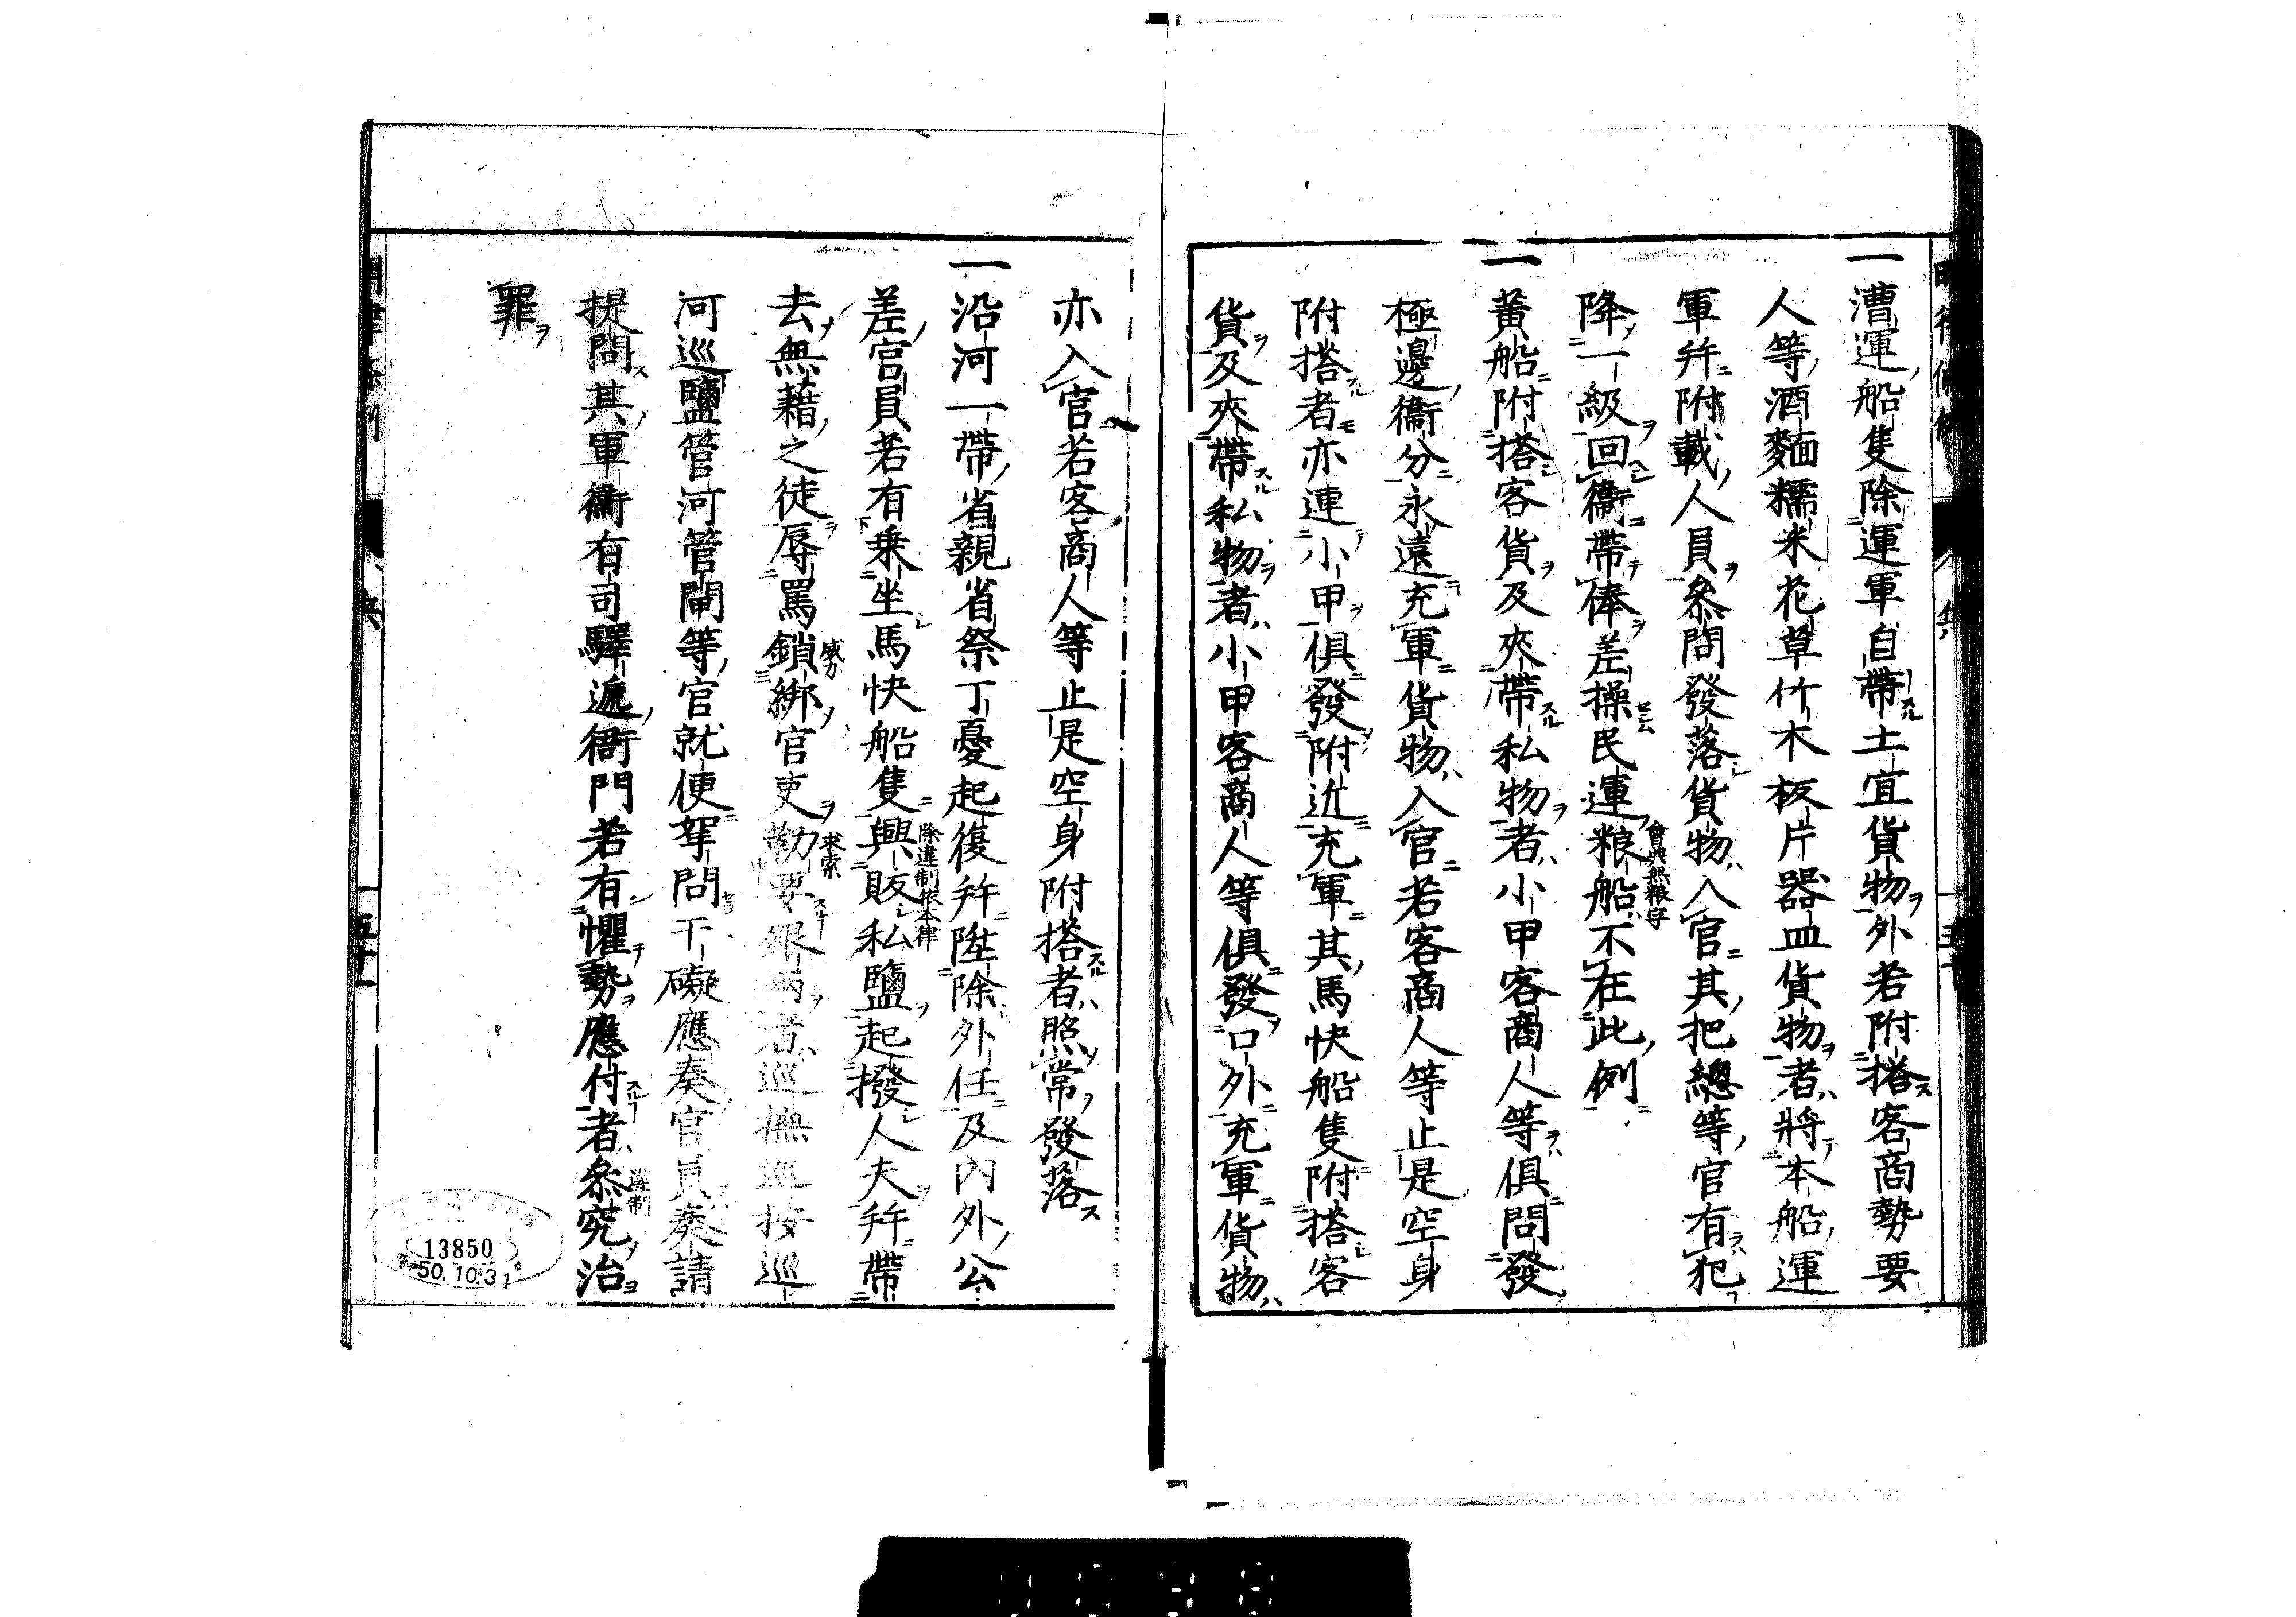 一漕運船隻除運軍自帶土宜貨物外若附搭客商勢要
人等酒麵糯米花草竹木板片器皿貨物者將本船運
軍幷附載人員叅問發落貨物入官其把總等官有犯
降一級回衞帶俸差操民運粮船不在此例
會典無粮字
一黃船附搭客貨及夾帶私物者小甲客商人等俱問發
極邊衞分永遠充軍貨物入官若客商人等止是空身
附搭者亦連小甲俱發附近充軍其馬快船隻附搭客
貨及夾帶私物者小甲客商人等俱發口外充軍貨物
亦入官若客商人等止是空身附搭者照常發落
一沿河一帶省親省祭丁憂起復幷陞除外任及內外公
差官員若有乗坐馬快船隻興販私鹽起撥人夫幷帶
除違制依本律
去無藉之徒辱罵鎖綁官吏勒要銀兩者巡撫巡按巡
威力
求索
河巡鹽管河管閘等官就便拏問干礙應奏官員奏請
提問其軍衞有司驛遞衙門若有懼勢應付者叅究治
違制
罪
五十一
13850
50.10.31